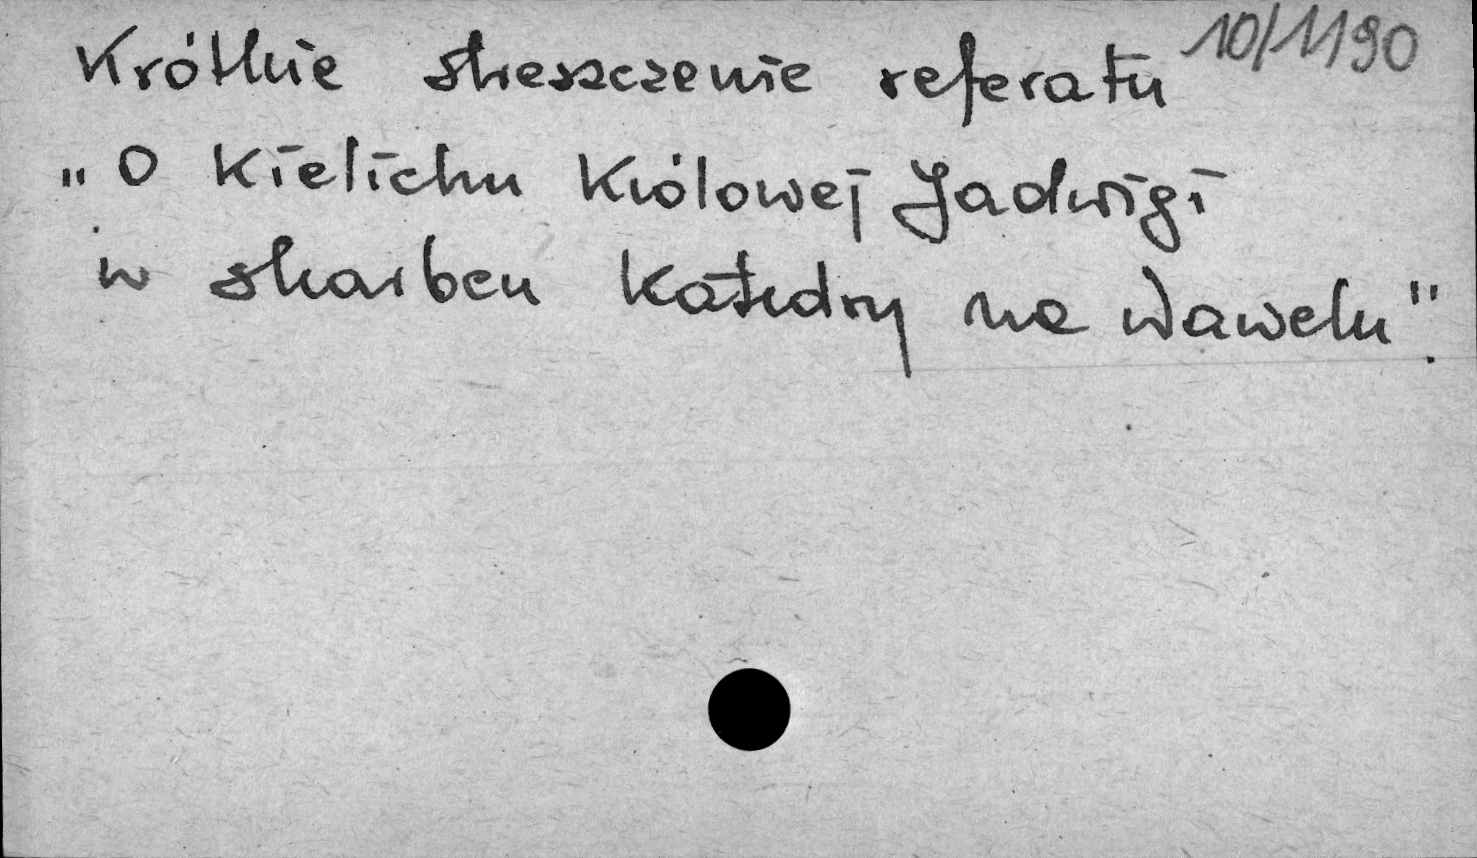 Krótkie streszczenie referatu 10/1190
„O Kielichu Królowej Jadwigi
w skarbcu Katedry na Wawelu".